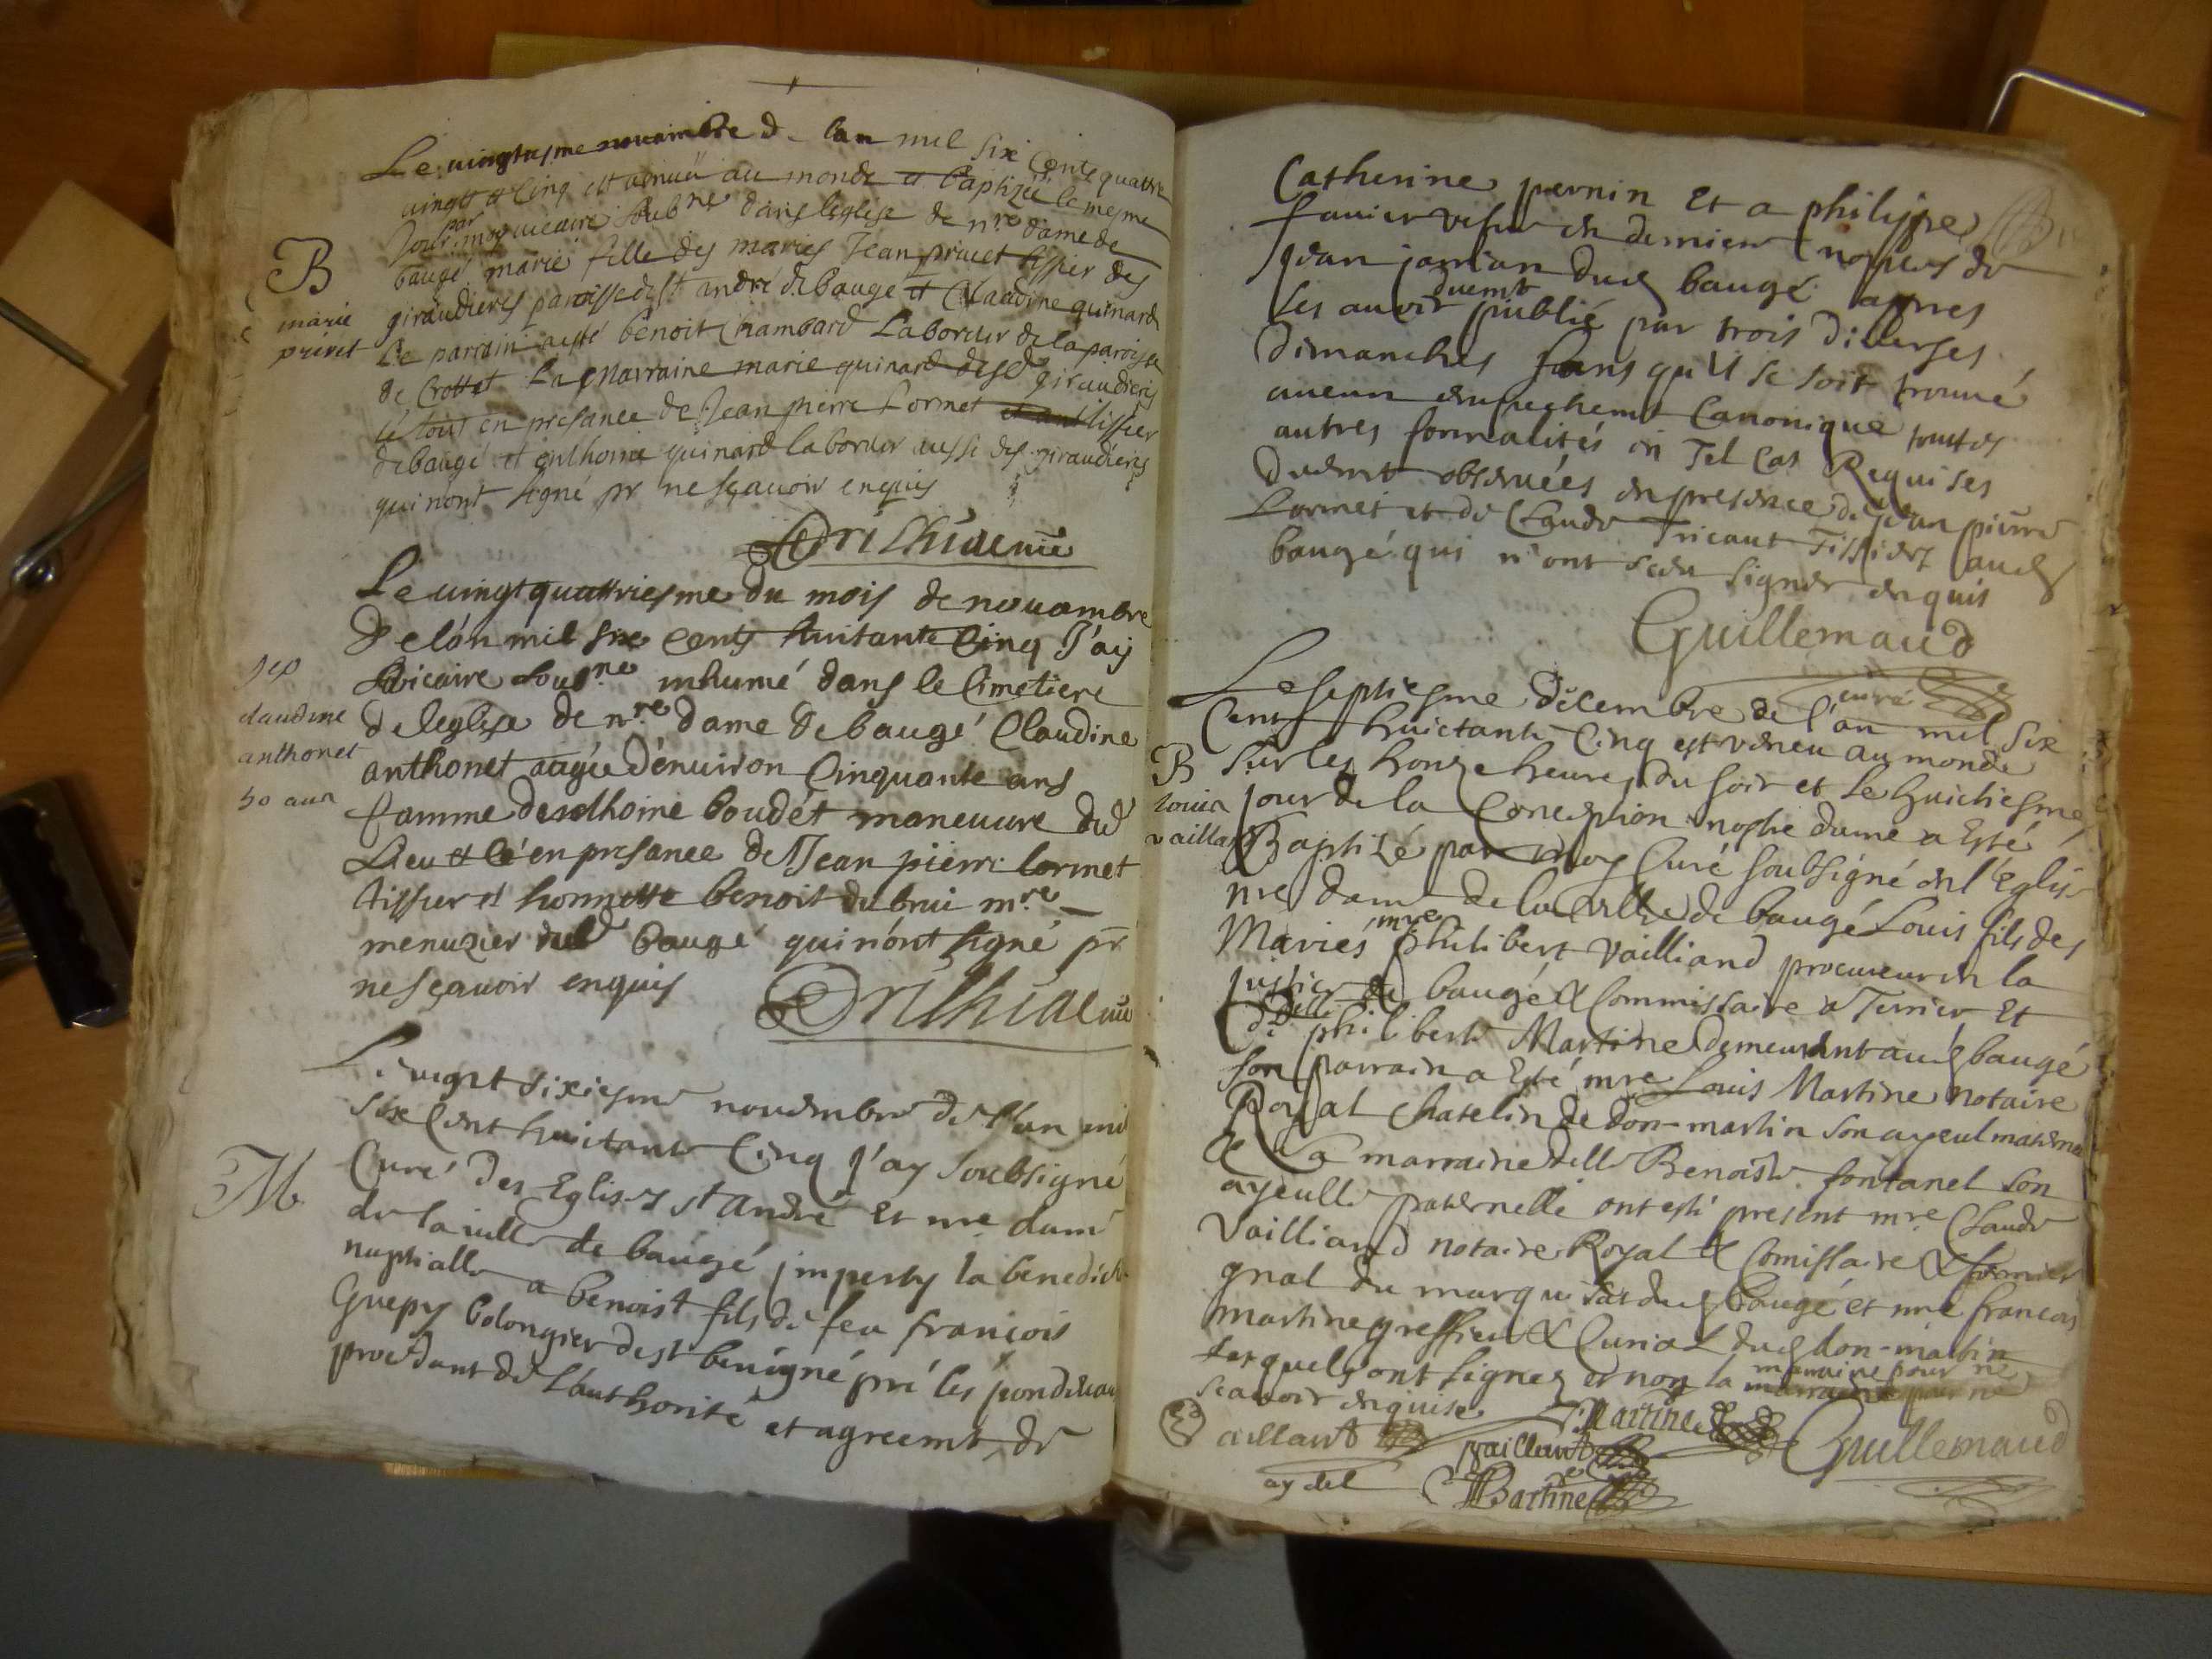 Le vingtiesme nouambre de lan mil six Cents quattre
vingts et Cinq est venuë au monde et baptizée le mesme
Jour par moy vicaire soubne dans leglise de nre dame de
baugé marie fille des mariés Jean privet tissier des
giraudieres paroisse de st andré de baugé et Claudine quinard
Le parrain a esté benoit Chambard Laboreur de la paroisse
de Crottet La Marraine marie quinard desd giraudieres
le tout en presance de Jean pierre Lormet tissier
de baugé et enthoine quinard laboreur aussi des giraudieres
qui n'ont signé pr ne sçavoir enquis
B
marie
privet
Le vingt quattriesme du mois de nouambre
De l'an mil six Cents huitante Cinq J'ay
Vicaire soubne inhumé dans le Cimetiere
de leglise de nre dame de baugé Claudine
anthonet aagée d'enuiron Cinquante ans
famme d'enthoine boudet maneuure dud
Lieu et ce en presance de Jean pierre lormet
tissier et honneste benoit dubrui mre
menuzier dud baugé qui n'ont signé pr
ne sçavoir enquis
sep
claudine
anthonet
50 ans
Le vingt sixiesme nouembre de l'an mil
six Cent huictante Cinq j'ay soubsigné
Curé des Eglises st André Et nre dame
de la ville de baugé imparty la benedict
nuptialle a benoist fils de feu françois
Guepy bolongier de st benigné pré les
procedant de L'authorité et agreemt de
M
Catherine pernin Et a philippe
fauier vefue en dernieres nopces de
Jean janian dud baugé apres
les auoir duemt publié par trois diuerses
dimanches sans qu'il se soit trouué
aucun empechemt Canonique toutes
autres formalités en Tel Cas Requises
Duemt obseruées en presence de Jean pierre
Lormet et de Claude Tricaut Tissiers aud
baugé qui n'ont sceu signer enquis
Guillemaud
curé
Le septiesme décembre de l'an mil six
Cent huictante Cinq est veneu au monde
sur les honze heures du soir et le huictiesme
jour de la Conception nostre dame a Esté
Baptizé par moy Curé soubsigné en l'Eglise
nre dame de la ville de baugé Louis fils des
Mariés mre philibert Vailliand procureur en la
justice de baugé & Commissaire a Terrier Et
delle philiberte Martine demeurant aud baugé
son parrain a Esté mre Louis Martine notaire
Royal Chatelin de don-martin son ayeul maternel
& La marraine delle Benoiste fontanel son
ayeulle paternelle ont esté present mre Claude
Vailliand notaire Royal & Comissaire & fermier
gnal du marquisat dud baugé et mre françois
Martine greffier & Curial dud don-martin
lesquels ont signez et non la marraine pour ne
scavoir enquise
B
louis
vaillan
Martine
aillant
vaillant
Guillemaud
Martine